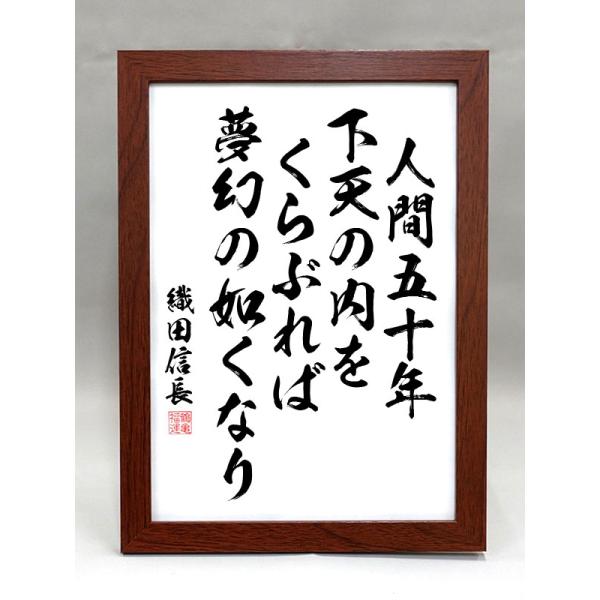 人間五十年
下天の内を
くらぶれば
夢幻の如くなり
織田信長